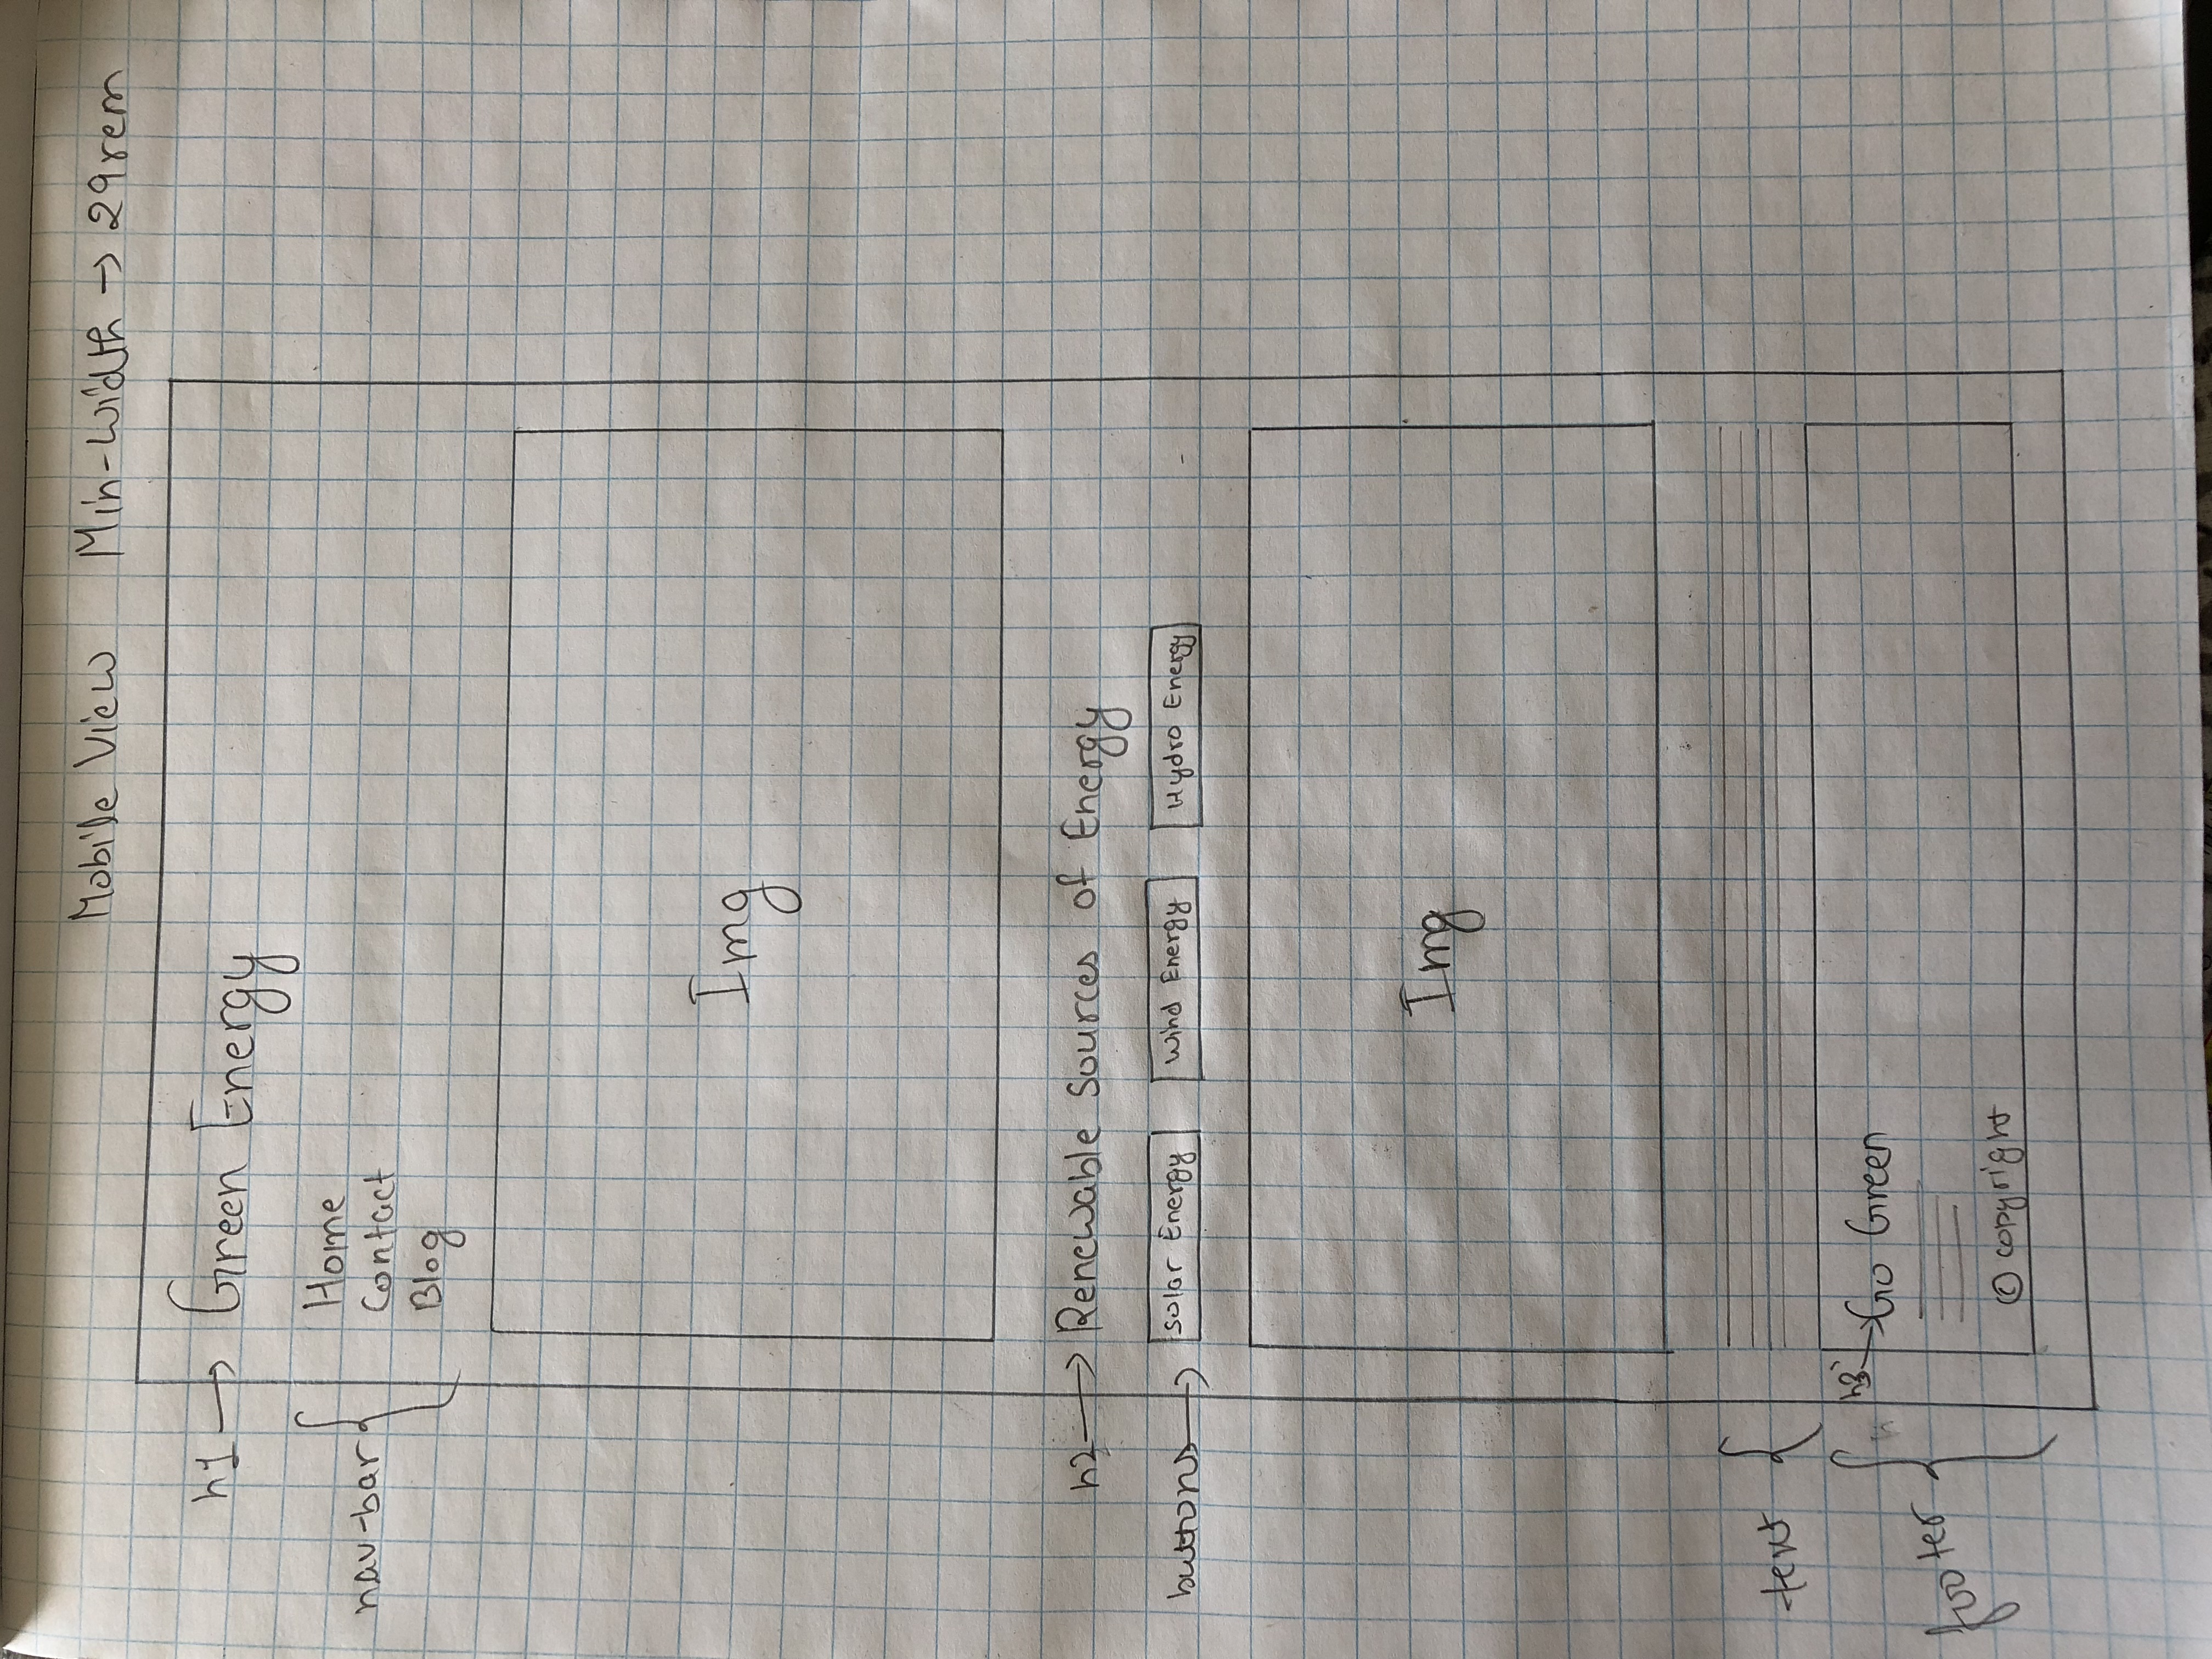 Mobile View Min-width → 29rem
h1 → Green Energy
nav-bar
Home
Contact
Blog
Img
h2 → Renewable Sources of Energy
buttons → Solar Energy Wind Energy Hydro Energy
Img
text
footer
h3 → Go Green
© copyright